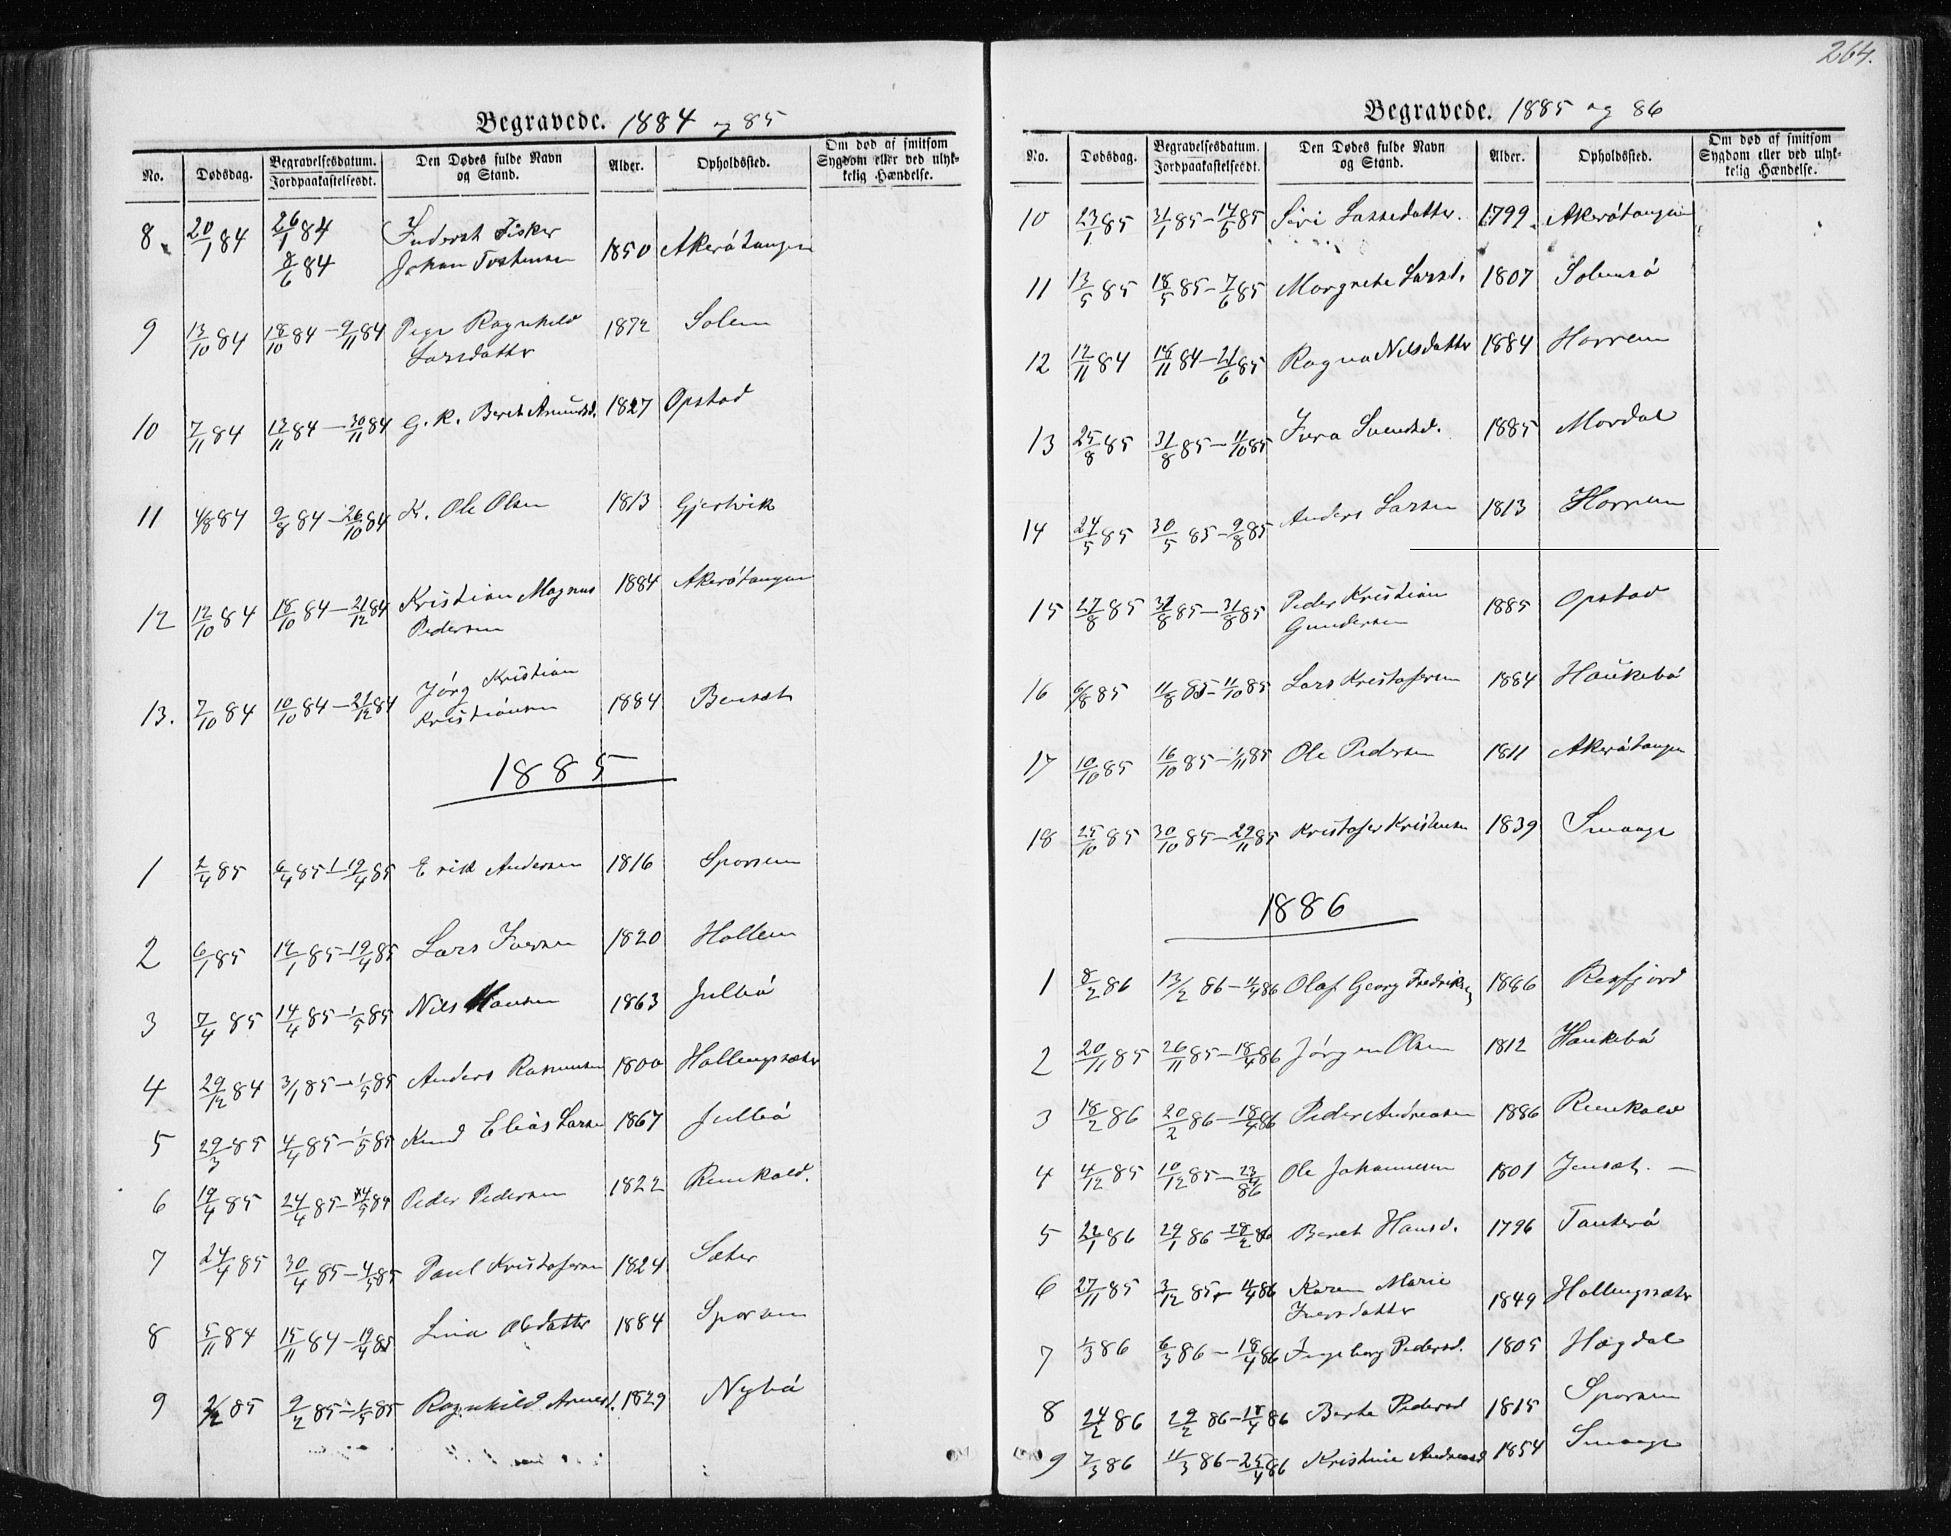 264.
Begravede. 1884 og 85
No. Dødsdag. Begravelsesdatum. Jordpaakastelsesdt. Den Dødes fulde Navn og Stand. Alder. Opholdssted. Om død af smitsom Sygdom eller ved ulykkelig Hændelse.
8. 20/1 84 26/1 84 8/6 84 Inderst Fisker Johan Tostensen 1850 Akerøtangen
9 13/10 84 18/10 84 – 9/11 84 Pige Ragnhild Larsdatter 1872 Solem
10 7/11 84 13/11 84 – 30/11 84 G. K. Beret Amundsd. 1827 Opstad
11 4/8 84 9/8 84 – 26/10 84 K. Ole Olsen 1813 Gjertvik
12 12/10 84 18/10 84 – 21/12 84 Kristian Magnus Pedersen 1884 Akerøtangen
13. 7/10 84 10/10 84 – 21/12 84 Jørg Kristian Kristiansen 1884 Bensæt
1885
1 2/4 85 6/4 85 – 19/4 85 Erik Andersen 1816 Sporsem
2 6/1 85 12/1 85 – 19/4 85 Lars Iversen 1820 Hollem
3 7/4 85 14/4 85 – 1/5 85 Nils Hansen 1863 Julbø
4 29/12 84 3/1 85 – 1/5 85 Anders Rasmussen 1800 Hollingsæter
5 29/3 85 4/4 85 – 1/5 85 Knud Elias Larsen 1867 Julbø
6 19/4 85 24/4 85 – 14/5 85 Peder Pedersen 1822 Renskald.
7 24/4 85 30/4 85 – 4/5 85 Paul Kristofersen 1824 Sæter
8 5/11 84 15/11 84 – 19/4 85 Lina Olsdatter 1884 Sporsem
9 2/2 85 9/2 85 – 1/5 85 Ragnhild Arnesd. 1829 Nybø
Begravede. 1885 og 86
No. Dødsdag. Begravelsesdatum. Jordpaakastelsesdt. Den Dødes fulde Navn og Stand. Alder. Opholdssted. Om død af smitsom Sygdom eller ved ulykkelig Hændelse.
10 23/1 85 31/1 85 – 14/5 85 Siri Lassedatter. 1799. Akerøtangen
11 13/5 85 18/5 85 – 7/6 85 Margrethe Larsd. 1807 Solemsø
12 12/11 84 18/11 84 – 21/6 85 Ragna Nilsdatter 1884 Horrem
13 25/8 85 31/8 85 – 11/10 85 Ivera Svendsd. 1885 Mordal
14 24/5 85 30/5 85 – 9/8 85 Anders Larsen 1813 Horrem
15 27/8 85 31/8 85 – 31/8 85 Peder Kristian Gundersen 1885 Opstad
16 6/8 85 11/8 85 – 11/10 85 Lars Kristofersen 1884 Haukebø
17 10/10 85 16/10 85 – 1/11 85 Ole Pedersen 1811 Akerøtangen
18 25/10 85 30/10 85 – 29/11 85 Kristofer Kristensen 1839 Smaage
1886
1 8/2 86 13/2 86 – 4/4 86 Olaf Georg Fredriksen 1886 Rexfjord
2 20/11 85 26/11 85 – 18/4 86 Jørgen Olsen 1812 Haukebø
3 18/2 86 20/2 86 – 18/4 86 Peder Andreasen 1886 Renskald
4 4/12 85 10/12 85 – 23/4 86 Ole Johannesen 1801 Jensæt. –
5 22/1 86 29/1 86 – 28/2 86 Beret Hansd. 1796 Tauterø
6 27/11 85 3/12 85 – 4/4 86 Karen Marie Iversdatter 1849 Hollingsæter
7 1/3 86 6/3 86 – 18/4 86 Ingeborg Pedersd. 1805 Hagdal
8 24/2 86 29/2 86 – 18/4 86 Berte Pedersd 1815 Sporsem
9 7/3 86 11/3 86 – 25/4 86 Kristine Andreasd 1854 Smaage